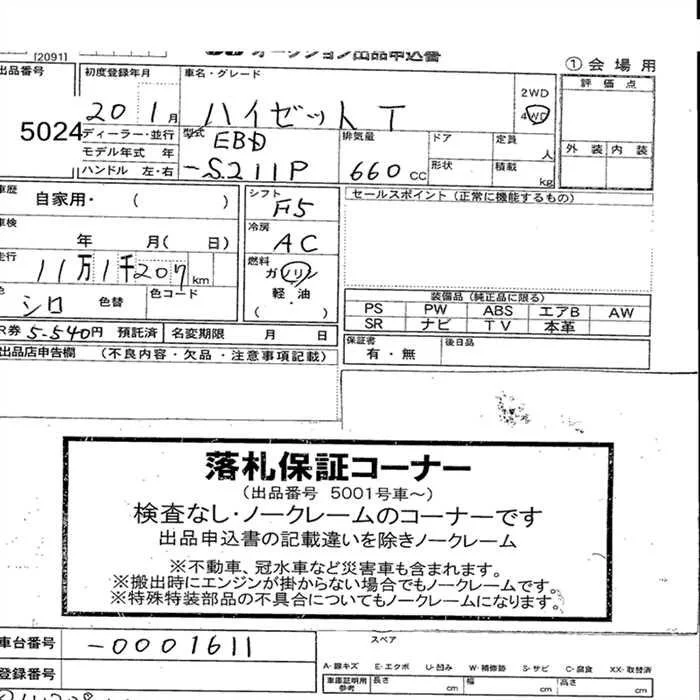 [2091]
オークション出品申込書
① 会場用
出品番号 初度登録年月 車名・グレード
評価点
外装 内装
5024
20 1月 ハイゼットT
2WD
4WD
ディーラー・並行
モデル年式 年
ハンドル 左・右
型式
EBD
-S211P
排気量
660 CC
ドア
形状
定員
人
積載
kg
車歴
自家用・( )
シフト
F5
セールスポイント (正常に機能するもの)
車検
年 月( 日)
冷房
AC
走行
11万1千207 km
燃料
ガソリン
軽・油
( )
色
シロ 色替 色コード
装備品 (純正品に限る)
PS PW ABS エアB AW
SR ナビ TV 本革
R券 5-540円 預託済 名変期限 月 日
保証書
有・無
後日品
出品店申告欄 (不良内容・欠品・注意事項記載)
落札保証コーナー
(出品番号 5001号車~)
検査なし・ノークレームのコーナーです
出品申込書の記載違いを除きノークレーム
※不動車、冠水車など災害車も含まれます。
※搬出時にエンジンが掛からない場合でもノークレームです。
※特殊特装部品の不具合についてもノークレームになります。
車台番号 -0001611
スペア
A-線キズ E-エクボ U-凹み W-補修跡 S-サビ C-腐食 XX-取替済
登録番号
車庫証明用
参考
長さ cm 幅 cm 高さ cm